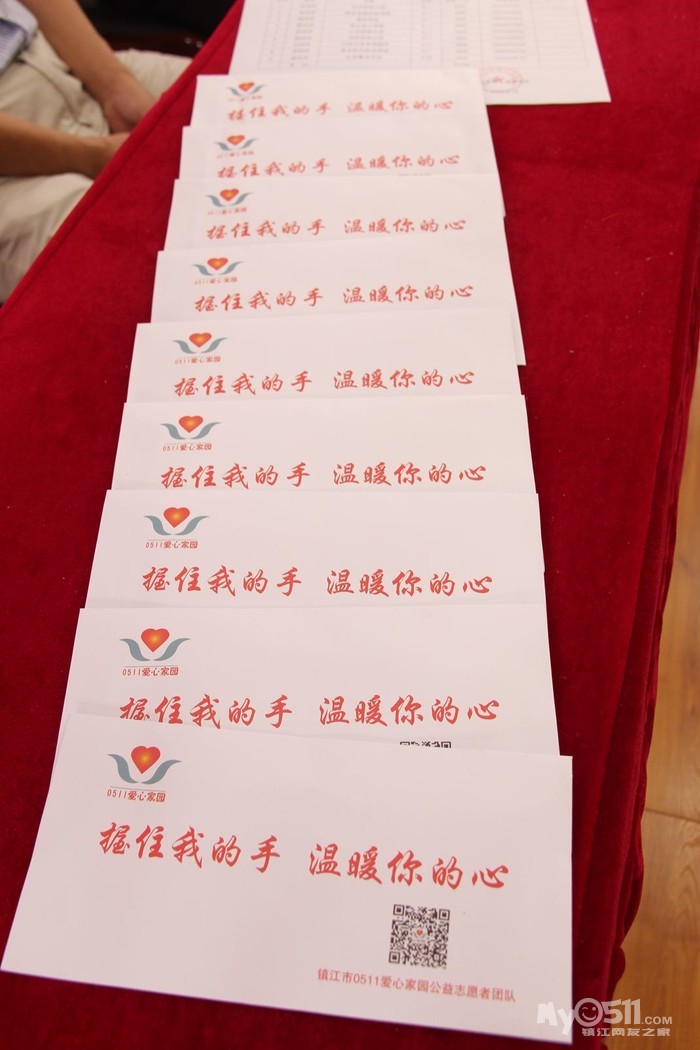 0511爱心家园
握住我的手 温暖你的心
0511爱心家园
握住我的手 温暖你的心
0511爱心家园
握住我的手 温暖你的心
0511爱心家园
握住我的手 温暖你的心
0511爱心家园
握住我的手 温暖你的心
0511爱心家园
握住我的手 温暖你的心
0511爱心家园
握住我的手 温暖你的心
0511爱心家园
握住我的手 温暖你的心
0511爱心家园
握住我的手 温暖你的心
镇江市0511爱心家园公益志愿者团队
My0511.COM
镇江网友之家